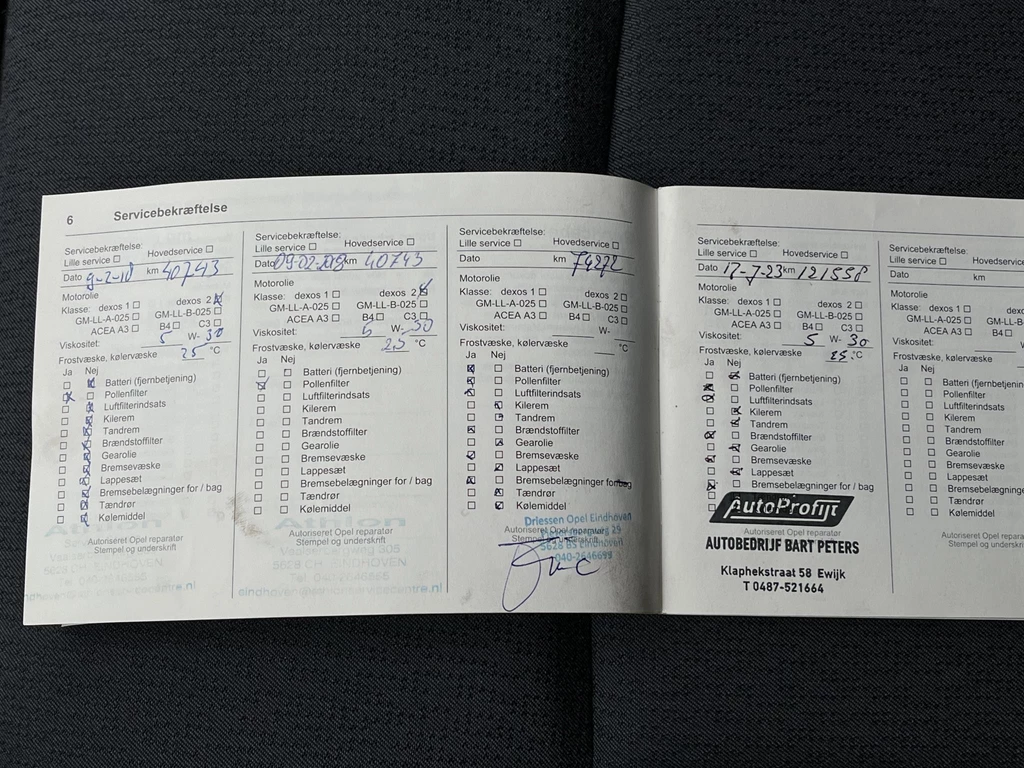 6 Servicebekræftelse
Servicebekræftelse:
Lille service ☐ Hovedservice ☐
Dato 9-2-18 km 40743
Motorolie
Klasse: dexos 1 ☐ dexos 2 ☒
GM-LL-A-025 ☐ GM-LL-B-025 ☐
ACEA A3 ☐ B4 ☐ C3 ☐
Viskositet: 5 W- 30
Frostvæske, kølervæske 25 °C
Ja Nej
☐ ☒ Batteri (fjernbetjening)
☒ ☐ Pollenfilter
☐ ☒ Luftfilterindsats
☐ ☒ Kilerem
☐ ☒ Tandrem
☐ ☒ Brændstoffilter
☐ ☒ Gearolie
☐ ☒ Bremsevæske
☐ ☒ Lappesæt
☐ ☒ Bremsebelægninger for / bag
☐ ☒ Tændrør
☐ ☒ Kølemiddel
Autoriseret Opel reparatør
Stempel og underskrift
Servicebekræftelse:
Lille service ☐ Hovedservice ☐
Dato 09-02-2018 km 40743
Motorolie
Klasse: dexos 1 ☐ dexos 2 ☒
GM-LL-A-025 ☐ GM-LL-B-025 ☐
ACEA A3 ☐ B4 ☐ C3 ☐
Viskositet: 5 W- 30
Frostvæske, kølervæske 25 °C
Ja Nej
☐ ☐ Batteri (fjernbetjening)
☒ ☐ Pollenfilter
☐ ☐ Luftfilterindsats
☐ ☐ Kilerem
☐ ☐ Tandrem
☐ ☐ Brændstoffilter
☐ ☐ Gearolie
☐ ☐ Bremsevæske
☐ ☐ Lappesæt
☐ ☐ Bremsebelægninger for / bag
☐ ☐ Tændrør
☐ ☐ Kølemiddel
Athlon
Autoriseret Opel reparatør
Stempel og underskrift
5628 CH EINDHOVEN
Servicebekræftelse:
Lille service ☐ Hovedservice ☐
Dato km 74272
Motorolie
Klasse: dexos 1 ☐ dexos 2 ☐
GM-LL-A-025 ☐ GM-LL-B-025 ☐
ACEA A3 ☐ B4 ☐ C3 ☐
Viskositet: W-
Frostvæske, kølervæske °C
Ja Nej
☒ ☐ Batteri (fjernbetjening)
☒ ☐ Pollenfilter
☒ ☐ Luftfilterindsats
☐ ☒ Kilerem
☐ ☒ Tandrem
☒ ☐ Brændstoffilter
☐ ☒ Gearolie
☒ ☐ Bremsevæske
☐ ☒ Lappesæt
☒ ☐ Bremsebelægninger for / bag
☐ ☒ Tændrør
☐ ☒ Kølemiddel
Driessen Opel Eindhoven
Autoriseret Opel reparatør
Stempel og underskrift
5628 BS Eindhoven
040-2646699
Servicebekræftelse:
Lille service ☐ Hovedservice ☐
Dato 17-7-23 km 121558
Motorolie
Klasse: dexos 1 ☐ dexos 2 ☐
GM-LL-A-025 ☐ GM-LL-B-025 ☐
ACEA A3 ☐ B4 ☐ C3 ☐
Viskositet: 5 W- 30
Frostvæske, kølervæske 25 °C
Ja Nej
☐ ☒ Batteri (fjernbetjening)
☒ ☐ Pollenfilter
☒ ☐ Luftfilterindsats
☐ ☒ Kilerem
☐ ☒ Tandrem
☒ ☐ Brændstoffilter
☐ ☒ Gearolie
☒ ☐ Bremsevæske
☐ ☒ Lappesæt
☒ ☐ Bremsebelægninger for / bag
AutoProfijt
Autoriseret Opel reparatør
AUTOBEDRIJF BART PETERS
Klaphekstraat 58 Ewijk
T 0487-521664
Servicebekræftelse:
Lille service ☐ Hovedservice
Dato km
Motorolie
Klasse: dexos 1 ☐
GM-LL-A-025 ☐ GM-LL-B
ACEA A3 ☐ B4
Viskositet:
Frostvæske, kølervæske
Ja Nej
☐ ☐ Batteri (fjernbetjening
☐ ☐ Pollenfilter
☐ ☐ Luftfilterindsats
☐ ☐ Kilerem
☐ ☐ Tandrem
☐ ☐ Brændstoffilter
☐ ☐ Gearolie
☐ ☐ Bremsevæske
☐ ☐ Lappesæt
☐ ☐ Bremsebelægninger
☐ ☐ Tændrør
☐ ☐ Kølemiddel
Autoriseret Opel
Stempel og